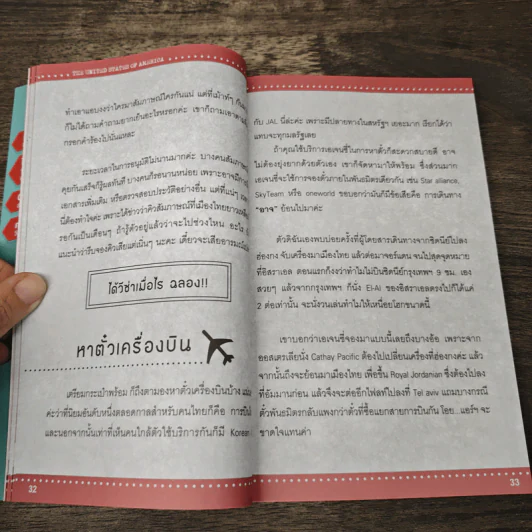 THE UNITED STATES OF AMERICA
ทำเอาแอบงงว่าใครมาสัมภาษณ์ใครกันแน่ แต่ที่เม้าท์ๆ กัน
ก็ไม่ได้ถามคำถามยากเย็นอะไรหรอกค่ะ เขาก็ถามเอาตามที่
กรอกคำร้องไปนั่นแหละ
ระยะเวลาในการอนุมัติไม่นานมากค่ะ บางคนสัมภาษณ์
คุยกันเสร็จก็รู้ผลทันที บางคนก็รอนานหน่อย เพราะอาจมีการ
เอกสารเพิ่มเติม หรือตรวจสอบประวัติอย่างอื่น แต่ที่แน่ๆ
นี้ต้องทำใจค่ะ เพราะได้ข่าวว่าคิวสัมภาษณ์ที่เมืองไทยยาว
รอกันเป็นเดือนๆ ถ้ารู้ตัวอยู่แล้วว่าจะไปช่วงไหน อะไร
แนะนำว่ารีบจองคิวเสียแต่เนิ่นๆ นะคะ เดี๋ยวจะเสียอารมณ์
ได้วีซ่าเมื่อไร ฉลอง!!
หาตั๋วเครื่องบิน
เตรียมกระเป๋าพร้อม ก็ถึงตามองหาตั๋วเครื่องบินบ้าง
ค่ะว่าที่นิยมอันดับหนึ่งตลอดกาลสำหรับคนไทยก็คือ การบิน
และนอกจากนั้นเท่าที่เห็นคนใกล้ตัวใช้บริการกันก็มี Korean
32
กับ JAL นี่ล่ะค่ะ เพราะมีปลายทางในสหรัฐฯ เยอะมาก เรียกได้ว่า
แทบจะทุกมลรัฐเลย
ถ้าคุณใช้บริการเอเจนซี่ในการหาตั๋วก็สะดวกสบายดี อาจ
ไม่ต้องยุ่งยากด้วยตัวเอง เขาก็จัดหามาให้พร้อม ซึ่งส่วนมาก
เอเจนซี่จะใช้การจองตั๋วภายในพันธมิตรเดียวกัน เช่น Star alliance,
SkyTeam หรือ oneworld ขอบอกว่ามันก็มีข้อเสียคือ การเดินทาง
"อาจ" ย้อนไปมาค่ะ
ตัวดิฉันเองพบบ่อยครั้งที่ผู้โดยสารเดินทางจากซิดนีย์ไปลง
ฮ่องกง จับเครื่องมาเมืองไทย แล้วต่อมาจอร์แดน จนไปสุดจุดหมาย
ที่อิสราเอล ตอนแรกก็งงว่าทำไมไม่บินซิดนีย์กรุงเทพฯ 9 ชม. เอง
สวยๆ แล้วจากกรุงเทพฯ ก็นั่ง El-Al ของอิสราเอลตรงไปก็ได้แค่
2 ต่อเท่านั้น จะนั่งวนเล่นทำไมให้เหนื่อยโฮกขนาดนี้
เขาบอกว่าเอเจนซี่จองมาแบบนี้เลยถึงบางอ้อ เพราะจาก
ออสเตรเลียนั่ง Cathay Pacific ต้องไปเปลี่ยนเครื่องที่ฮ่องกงค่ะ แล้ว
จากนั้นถึงจะย้อนมาเมืองไทย เพื่อขึ้น Royal Jordanian ซึ่งต้องไปลง
ที่อัมมานก่อน แล้วจึงจะต่ออีกไฟลท์ไปลงที่ Tel aviv แถมบางกรณี
ตั๋วพันธมิตรกลับแพงกว่าตั๋วที่ซื้อแยกสายการบินกัน โอย...แอร์ฯ จะ
ขาดใจแทนค่า
33